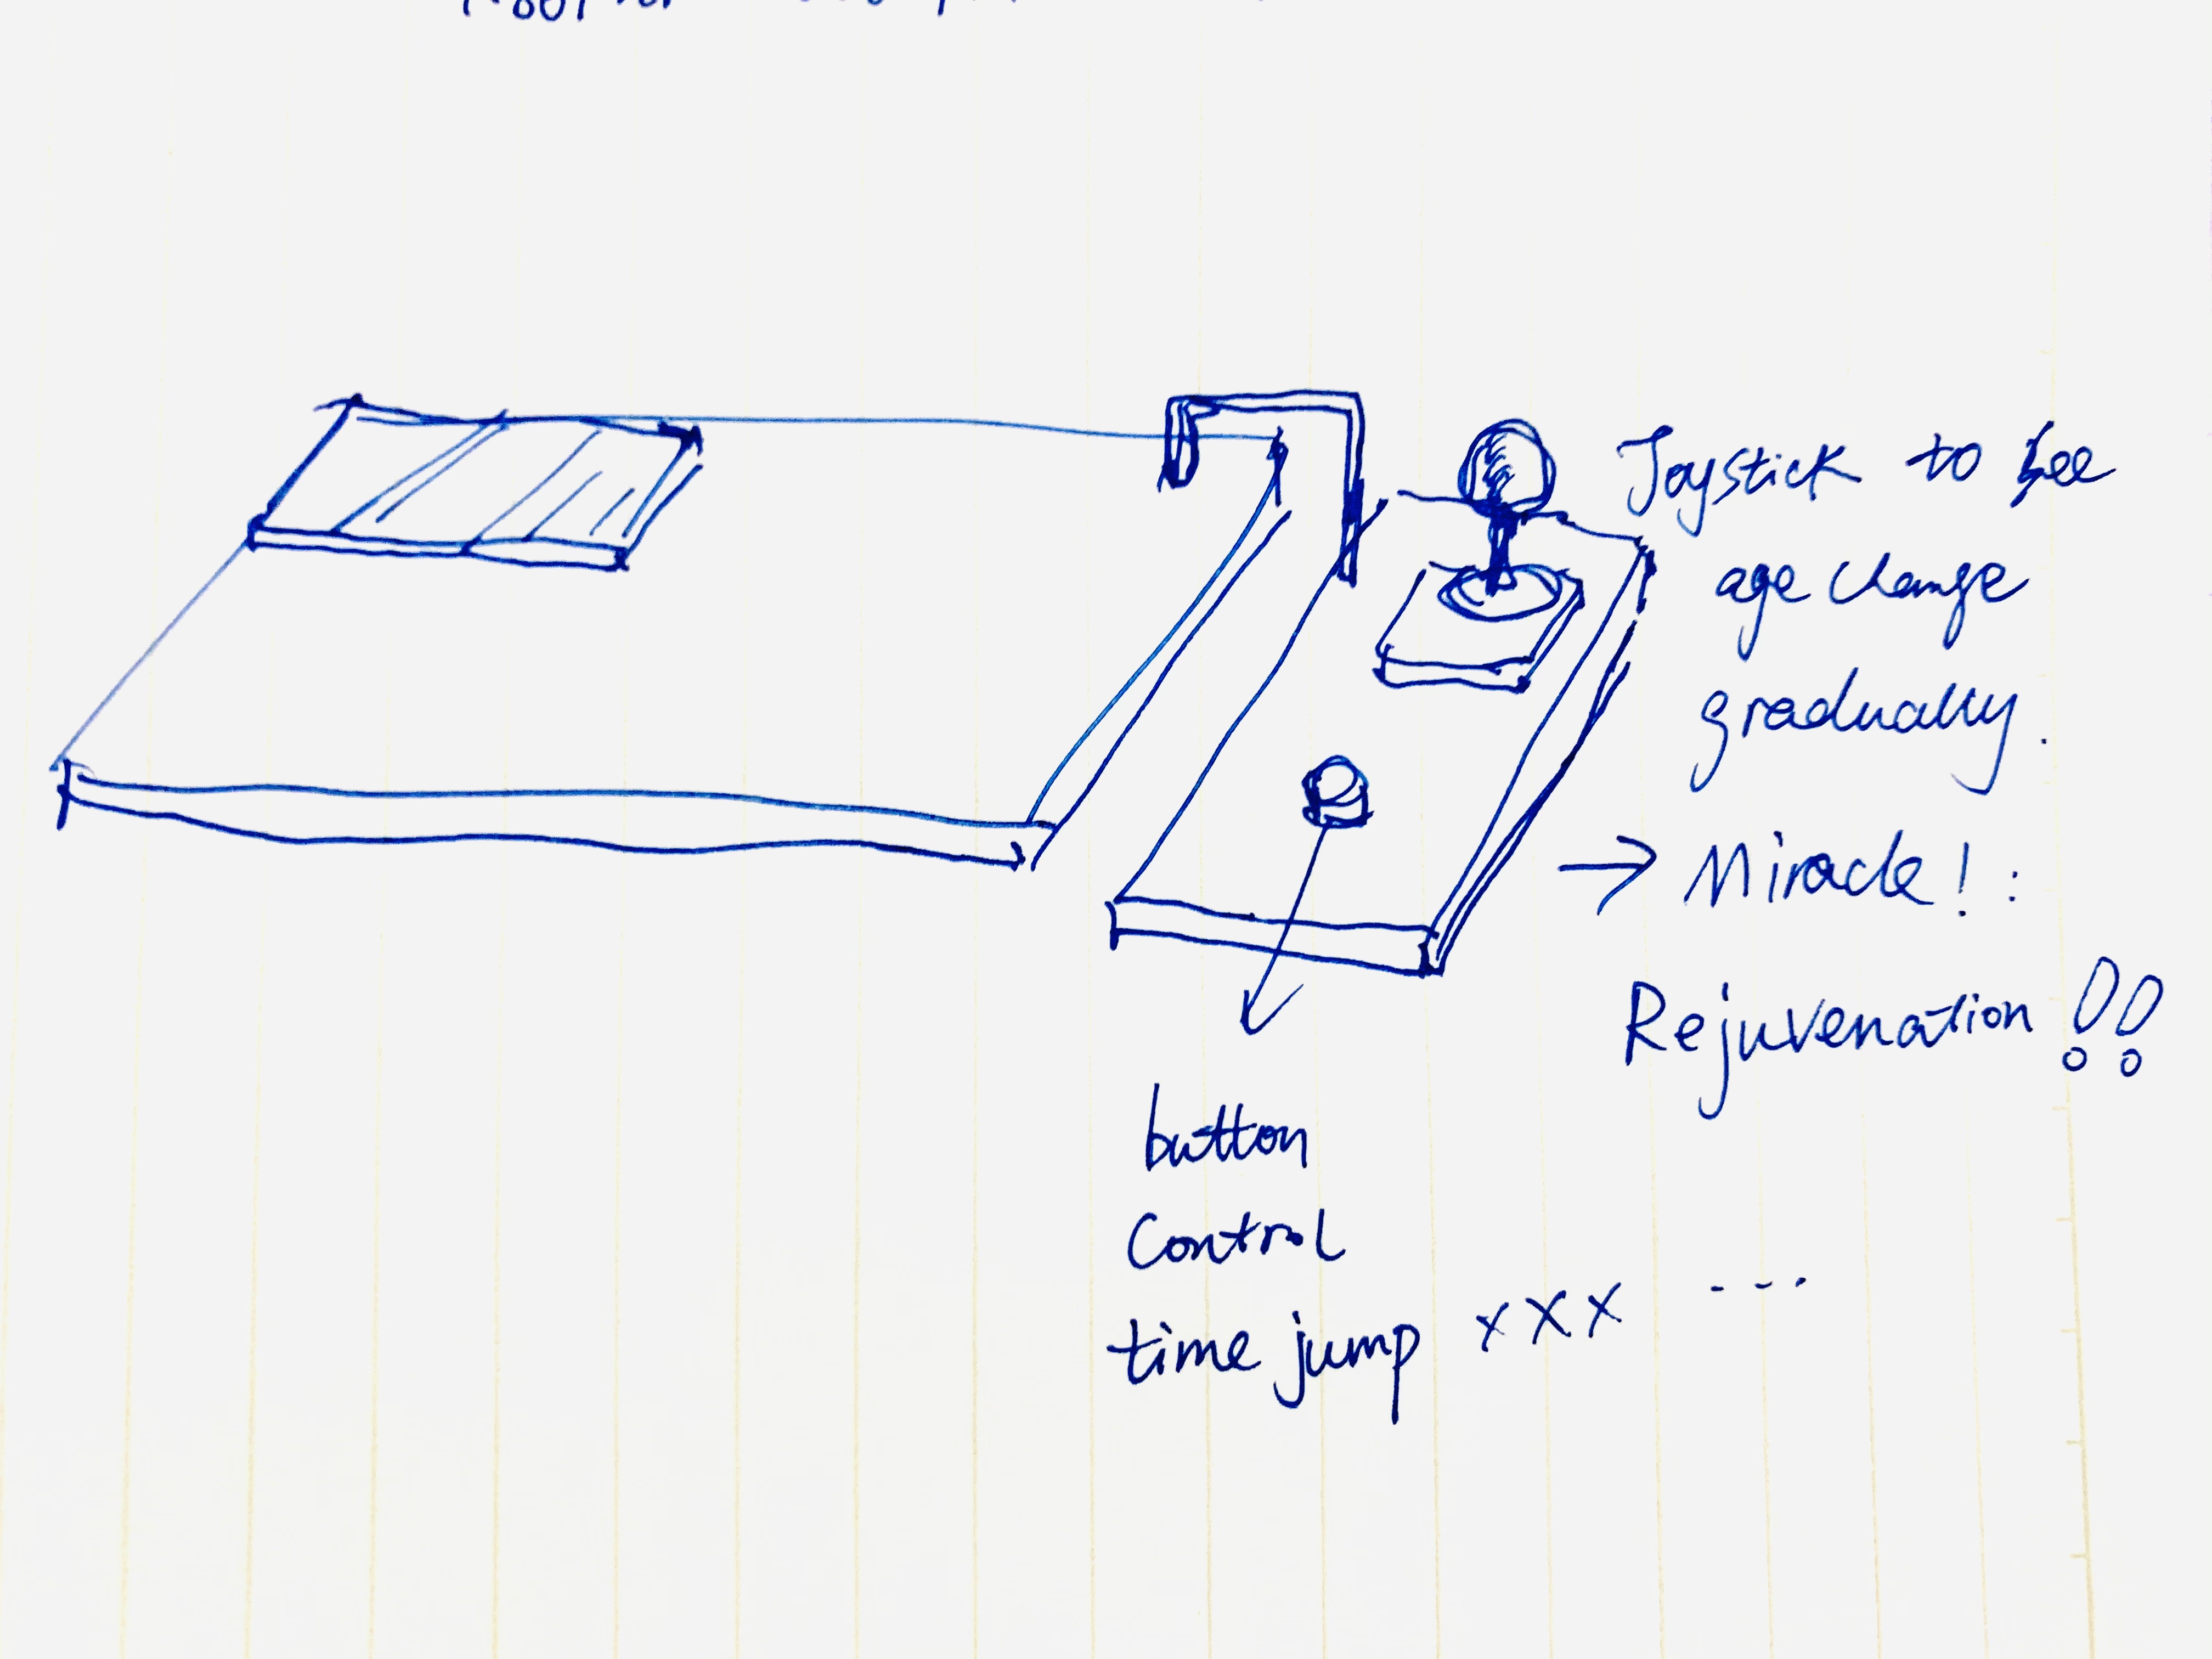 Joystick to see
age change
gradually.
→ Miracle! :
Rejuvenation !!
button
Control
time jump xxx ---